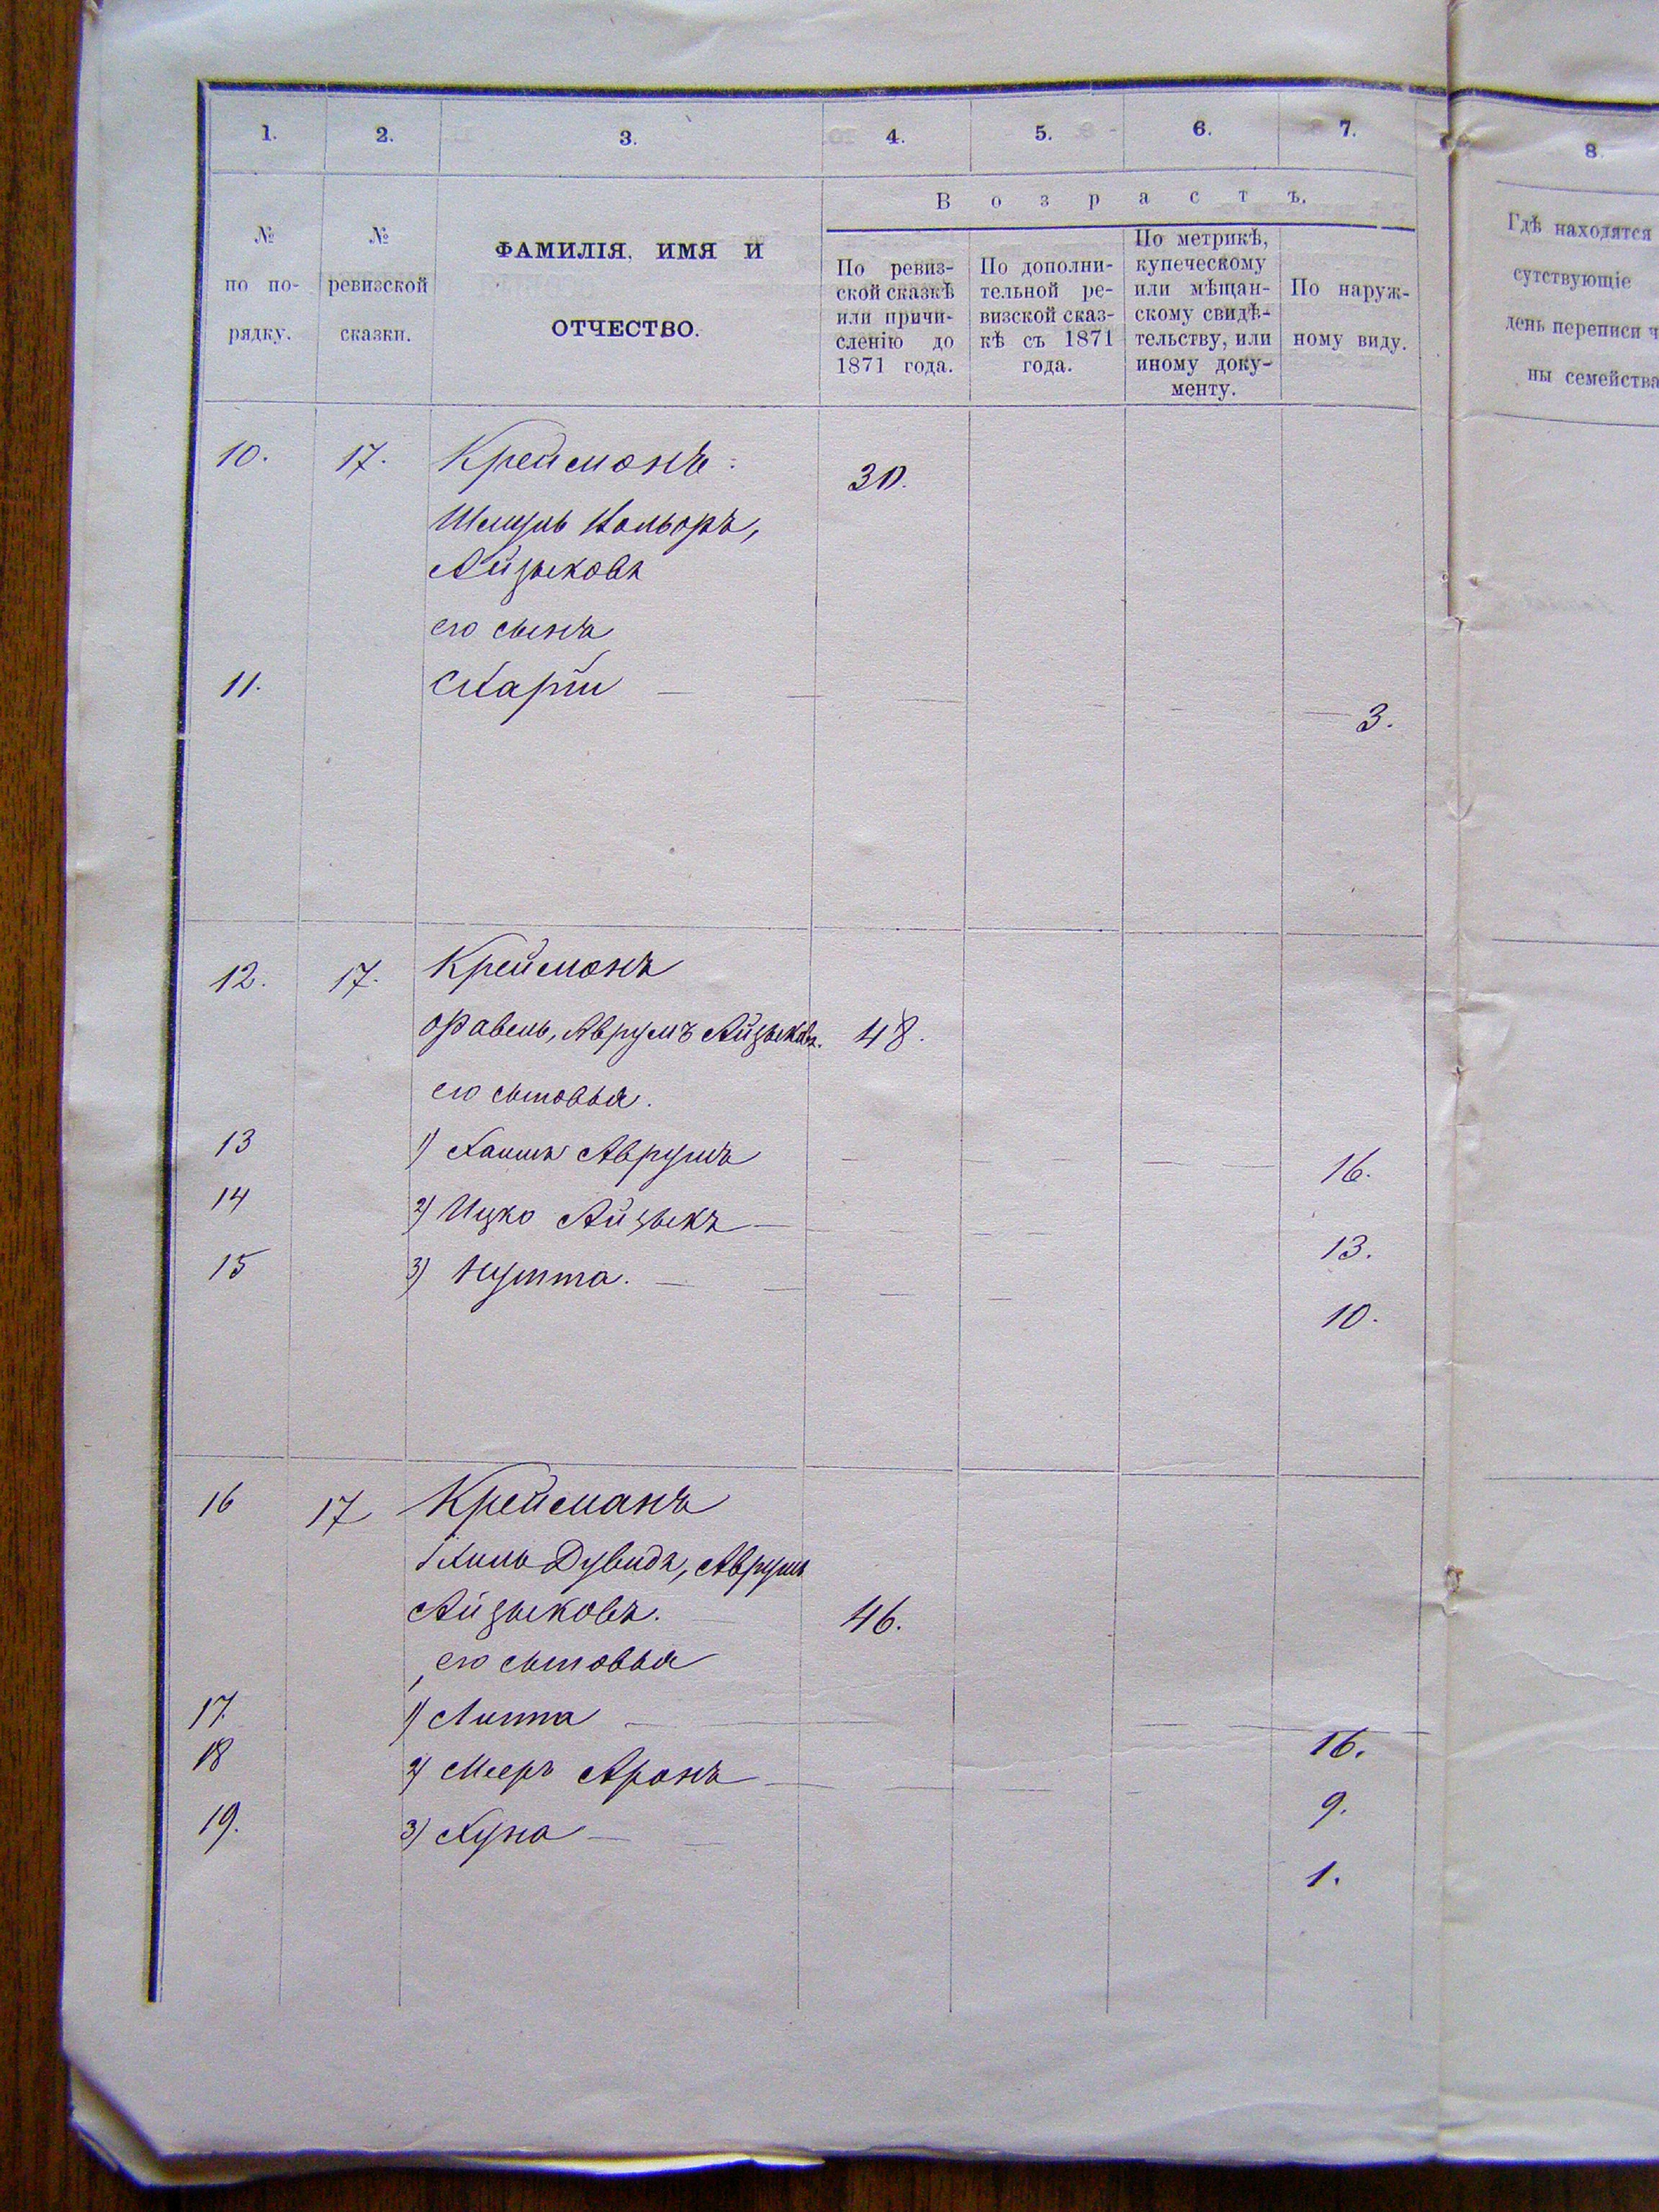 1. 2. 3. 4. 5. 6. 7. 8.
Возрастъ.
№ по по-рядку.
№ ревизской сказки.
ФАМИЛІЯ, ИМЯ И
ОТЧЕСТВО.
По ревиз-
ской сказкѣ
или причи-
сленію до
1871 года.
По дополни-
тельной ре-
визской сказ-
кѣ съ 1871
года.
По метрикѣ,
купеческому
или мѣщан-
скому свидѣ-
тельству, или
иному доку-
менту.
По наруж-
ному виду.
Гдѣ находятся
сутствующіе
день переписи ч
ны семейства
10. 17. Крейманъ 30.
Шмуль
Айзыковъ
его сынъ
11. 3.
12. 17. Крейманъ
Аврумъ Айзыков. 48.
его сыновья.
13 1) Аврумъ 16.
14 2) Ицко Айзыкъ 13.
15 3) 10.
16 17 Крейманъ
Дувидъ, Аврумъ
Айзыковъ. 46.
его сыновья
17. 1) Липа 16.
18 2) Мееръ Аронъ 9.
19. 3) Хуна 1.